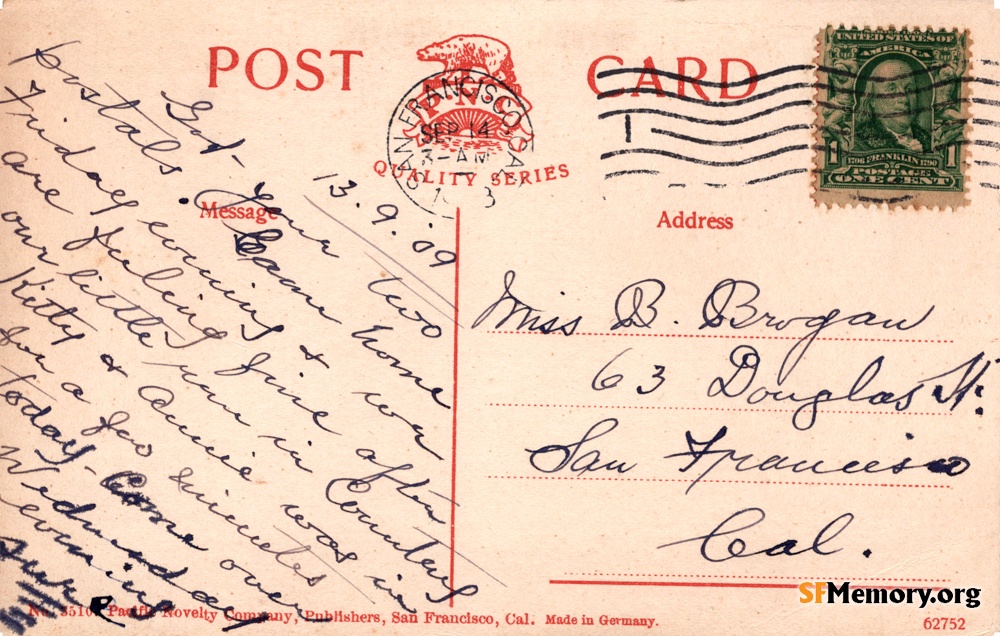 POST CARD
P N C
QUALITY SERIES
SAN FRANCISCO, CAL
SEP 14
3-AM
UNITED STATES OF
AMERICA
1 1
1706 FRANKLIN 1790
POSTAGE
ONE CENT
Message
Address
13.9.'09
Got Your two
postals. Came home
Friday evening & we
are feeling fine after
our little run in Country
Kitty & Annie was in
for a few minutes
today. Come over
Wednesday
evening
sure
Miss B. Brogan
63 Douglas St.
San Francisco
Cal.
Pacific Novelty Company, Publishers, San Francisco, Cal. Made in Germany.
SFMemory.org
62752